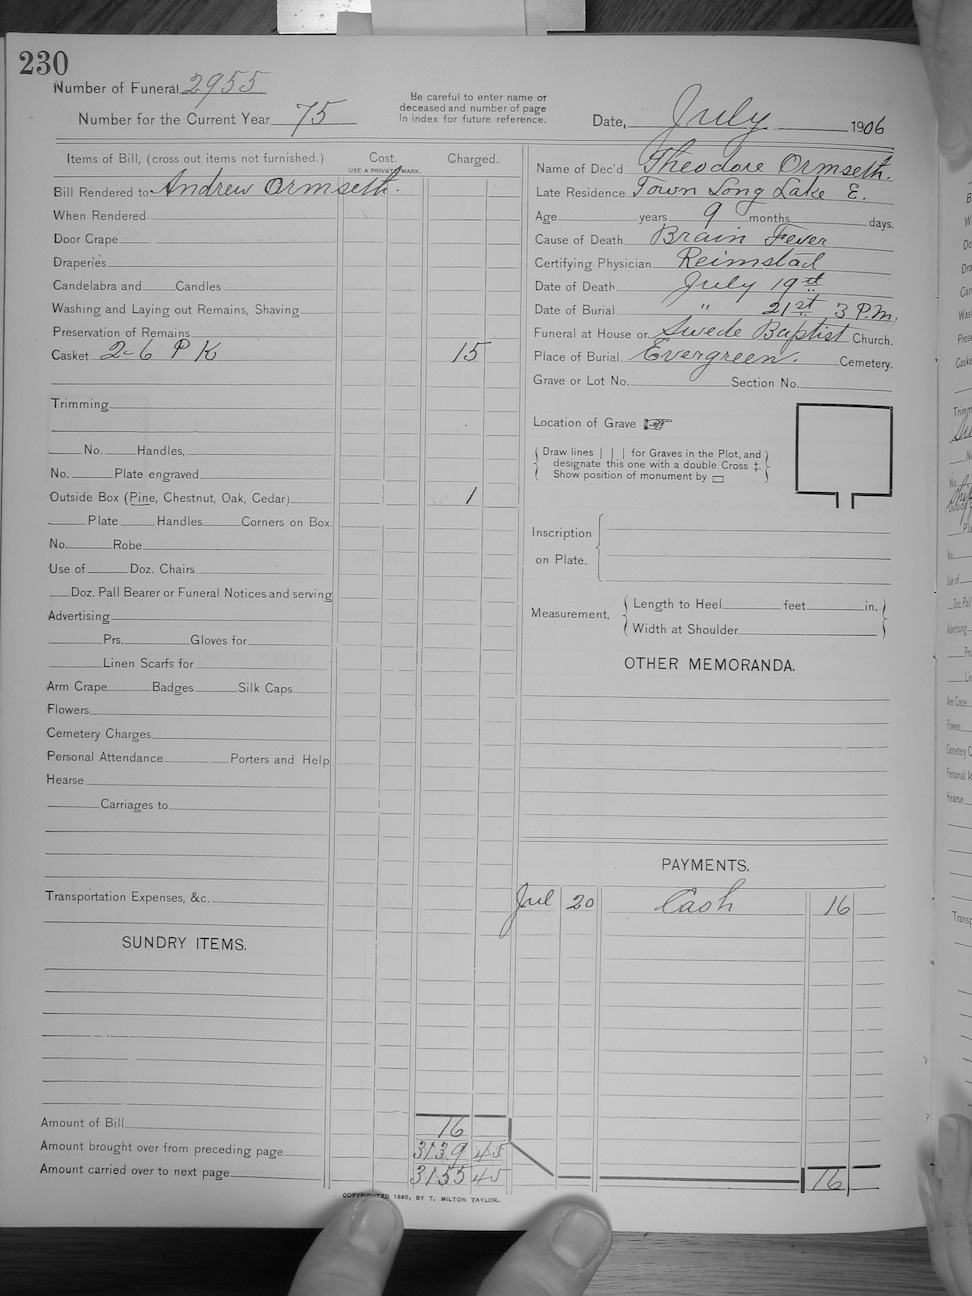 230
Number of Funeral 2955
Number for the Current Year 75
Be careful to enter name of
deceased and number of page
In index for future reference.
Date, July 1906
Items of Bill, (cross out items not furnished.) Cost. Charged.
USE A PRIVATE MARK.
Bill Rendered to Andrew Ormseth.
When Rendered
Door Crape
Draperies
Candelabra and Candles
Washing and Laying out Remains, Shaving
Preservation of Remains
Casket 2-6 P K 15
Trimming
No. Handles,
No. Plate engraved
Outside Box (Pine, Chestnut, Oak, Cedar) 1
Plate Handles Corners on Box.
No. Robe
Use of Doz. Chairs
Doz. Pall Bearer or Funeral Notices and serving
Advertising
Prs. Gloves for
Linen Scarfs for
Arm Crape Badges Silk Caps
Flowers
Cemetery Charges
Personal Attendance Porters and Help
Hearse
Carriages to
Transportation Expenses, &c.
SUNDRY ITEMS.
Amount of Bill 16
Amount brought over from preceding page 3139 45
Amount carried over to next page 3155 45
Name of Dec'd Theodore Ormseth.
Late Residence Town Long Lake E.
Age years 9 months days.
Cause of Death Brain Fever
Certifying Physician Reimstad
Date of Death July 19th
Date of Burial " 21st 3 P.M.
Funeral at House or Swede Baptist Church.
Place of Burial Evergreen. Cemetery.
Grave or Lot No. Section No.
Location of Grave
Draw lines | | | for Graves in the Plot, and
designate this one with a double Cross ‡.
Show position of monument by ▭
Inscription
on Plate.
Measurement, Length to Heel feet in.
Width at Shoulder
OTHER MEMORANDA.
PAYMENTS.
Jul 20 Cash 16
16
COPYRIGHTED 1890, BY T. MILTON TAYLOR.